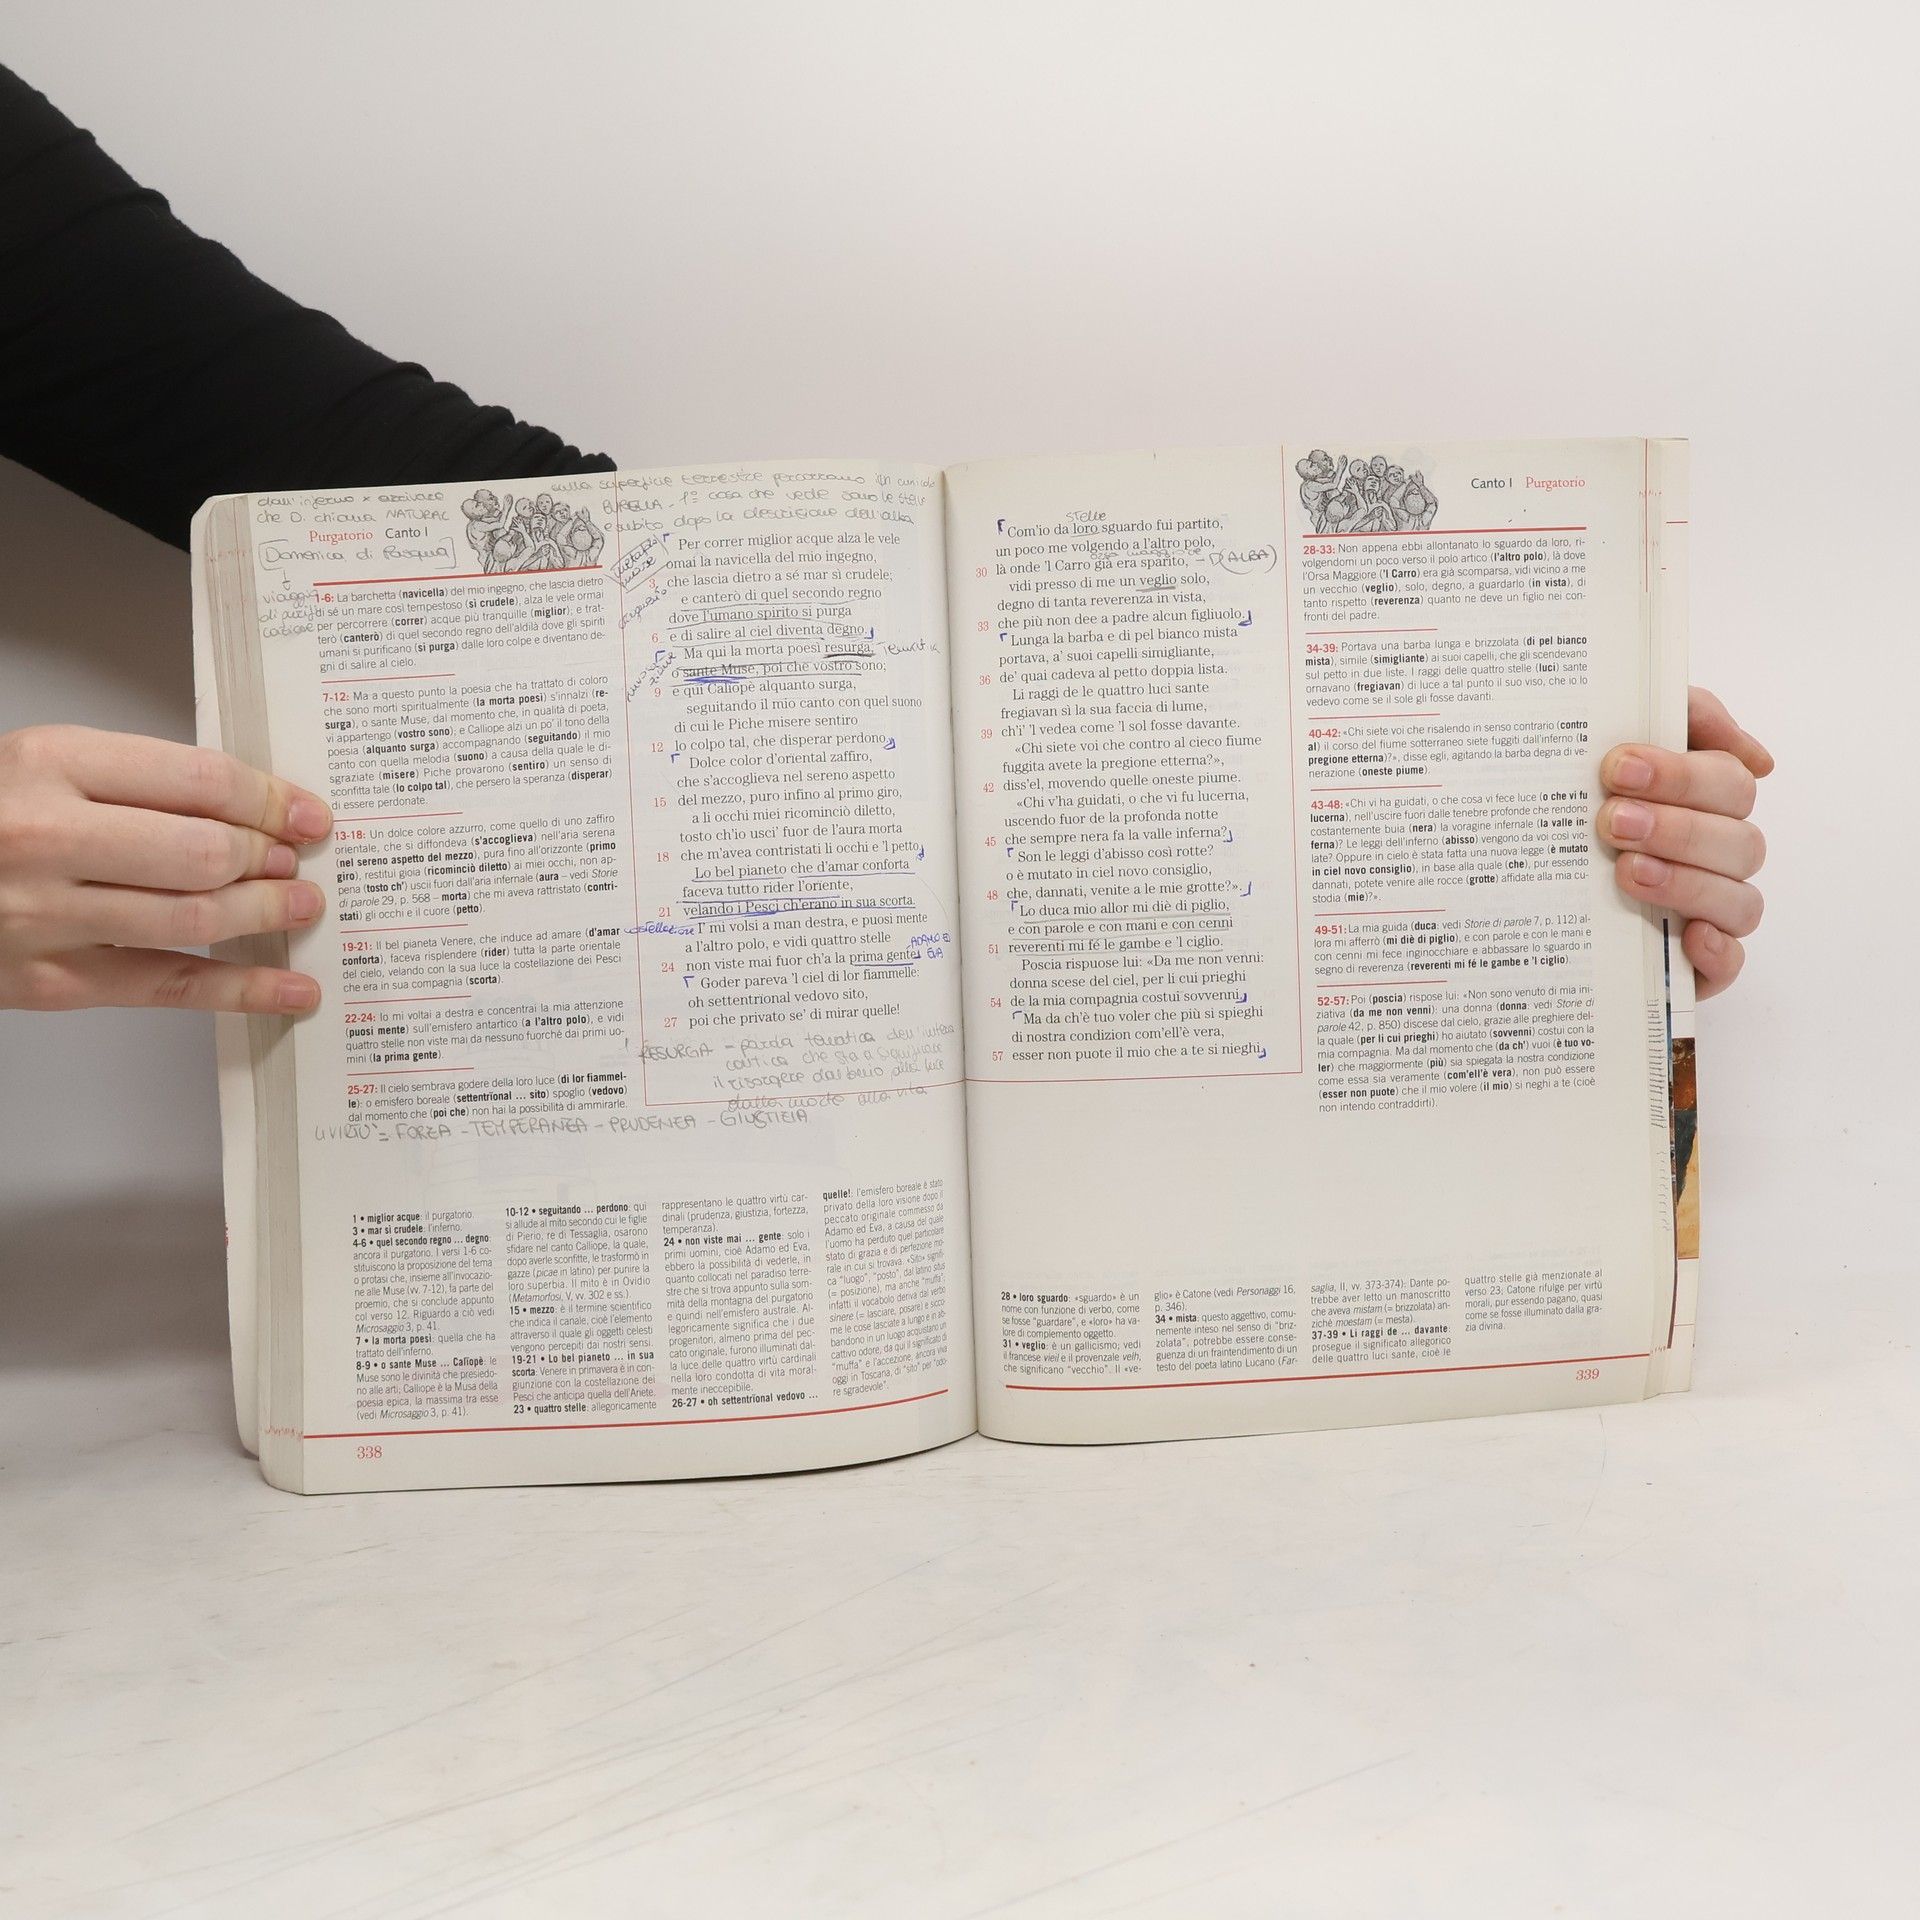 dall'inferno x arrivare
che D. chiama NATURAL
Purgatorio Canto I
Domenica di Pasqua
sulla superficie terrestre percorrono un cunicolo
BURELLA - 1ª cosa che vede sono le stelle
e subito dopo la descrizione dell'alba
1-6: La barchetta (navicella) del mio ingegno, che lascia dietro
di sé un mare così tempestoso (sì crudele), alza le vele ormai
per percorrere (correr) acque più tranquille (miglior); e trat-
terò (canterò) di quel secondo regno dell'aldilà dove gli spiriti
umani si purificano (si purga) dalle loro colpe e diventano de-
gni di salire al cielo.
7-12: Ma a questo punto la poesia che ha trattato di coloro
che sono morti spiritualmente (la morta poesì) s'innalzi (re-
surga), o sante Muse, dal momento che, in qualità di poeta,
vi appartengo (vostro sono); e Calliope alzi un po' il tono della
poesia (alquanto surga) accompagnando (seguitando) il mio
canto con quella melodia (suono) a causa della quale le di-
sgraziate (misere) Piche provarono (sentiro) un senso di
sconfitta tale (lo colpo tal), che persero la speranza (disperar)
di essere perdonate.
13-18: Un dolce colore azzurro, come quello di uno zaffiro
orientale, che si diffondeva (s'accoglieva) nell'aria serena
(nel sereno aspetto del mezzo), pura fino all'orizzonte (primo
giro), restituì gioia (ricominciò diletto) ai miei occhi, non ap-
pena (tosto ch') uscii fuori dall'aria infernale (aura – vedi Storie
di parole 29, p. 568 – morta) che mi aveva rattristato (contri-
stati) gli occhi e il cuore (petto).
19-21: Il bel pianeta Venere, che induce ad amare (d'amar
conforta), faceva risplendere (rider) tutta la parte orientale
del cielo, velando con la sua luce la costellazione dei Pesci
che era in sua compagnia (scorta).
22-24: Io mi voltai a destra e concentrai la mia attenzione
(puosi mente) sull'emisfero antartico (a l'altro polo), e vidi
quattro stelle non viste mai da nessuno fuorché dai primi uo-
mini (la prima gente).
25-27: Il cielo sembrava godere della loro luce (di lor fiammel-
le): o emisfero boreale (settentrional ... sito) spoglio (vedovo)
dal momento che (poi che) non hai la possibilità di ammirarle.
Per correr miglior acque alza le vele
omai la navicella del mio ingegno,
3 che lascia dietro a sé mar sì crudele;
e canterò di quel secondo regno
dove l'umano spirito si purga
6 e di salire al ciel diventa degno.
Ma qui la morta poesì resurga,
o sante Muse, poi che vostro sono;
9 e qui Calïopè alquanto surga,
seguitando il mio canto con quel suono
di cui le Piche misere sentiro
12 lo colpo tal, che disperar perdono.
Dolce color d'orïental zaffiro,
che s'accoglieva nel sereno aspetto
15 del mezzo, puro infino al primo giro,
a li occhi miei ricominciò diletto,
tosto ch'io usci' fuor de l'aura morta
18 che m'avea contristati li occhi e 'l petto.
Lo bel pianeto che d'amar conforta
faceva tutto rider l'orïente,
21 velando i Pesci ch'erano in sua scorta.
costellazione
I' mi volsi a man destra, e puosi mente
a l'altro polo, e vidi quattro stelle
24 non viste mai fuor ch'a la prima gente.
ADAMO ED
EVA
Goder pareva 'l ciel di lor fiammelle:
oh settentrïonal vedovo sito,
27 poi che privato se' di mirar quelle!
RESURGA - parola tematica dell'intera
cantica che sta a significare
il risorgere dal buio alla luce
dalla morte alla vita
4 VIRTÙ = FORZA - TEMPERANZA - PRUDENZA - GIUSTIZIA
1 • miglior acque: il purgatorio.
3 • mar sì crudele: l'inferno.
4-6 • quel secondo regno ... degno:
ancora il purgatorio. I versi 1-6 co-
stituiscono la proposizione del tema
o protasi che, insieme all'invocazio-
ne alle Muse (vv. 7-12), fa parte del
proemio, che si conclude appunto
col verso 12. Riguardo a ciò vedi
Microsaggio 3, p. 41.
7 • la morta poesì: quella che ha
trattato dell'inferno.
8-9 • o sante Muse ... Calïopè: le
Muse sono le divinità che presiedo-
no alle arti; Calliope è la Musa della
poesia epica, la massima tra esse
(vedi Microsaggio 3, p. 41).
10-12 • seguitando ... perdono: qui
si allude al mito secondo cui le figlie
di Pierio, re di Tessaglia, osarono
sfidare nel canto Calliope, la quale,
dopo averle sconfitte, le trasformò in
gazze (picae in latino) per punire la
loro superbia. Il mito è in Ovidio
(Metamorfosi, V, vv. 302 e ss.)
15 • mezzo: è il termine scientifico
che indica il canale, cioè l'elemento
attraverso il quale gli oggetti celesti
vengono percepiti dai nostri sensi.
19-21 • Lo bel pianeto ... in sua
scorta: Venere in primavera è in con-
giunzione con la costellazione dei
Pesci che anticipa quella dell'Ariete.
23 • quattro stelle: allegoricamente
rappresentano le quattro virtù car-
dinali (prudenza, giustizia, fortezza,
temperanza).
24 • non viste mai ... gente: solo i
primi uomini, cioè Adamo ed Eva,
ebbero la possibilità di vederle, in
quanto collocati nel paradiso terre-
stre che si trova appunto sulla som-
mità della montagna del purgatorio
e quindi nell'emisfero australe. Al-
legoricamente significa che i due
progenitori, almeno prima del pec-
cato originale, furono illuminati dal-
la luce delle quattro virtù cardinali
nella loro condotta di vita moral-
mente ineccepibile.
26-27 • oh settentrïonal vedovo ...
quelle!: l'emisfero boreale è stato
privato della loro visione dopo il
peccato originale commesso da
Adamo ed Eva, a causa del quale
l'uomo ha perduto quel particolare
stato di grazia e di perfezione mo-
rale in cui si trovava. «Sito» signifi-
ca "luogo", "posto", dal latino situs
(= posizione), ma anche "muffa";
infatti il vocabolo deriva dal verbo
sinere (= lasciare, posare) e sicco-
me le cose lasciate a lungo e in ab-
bandono in un luogo acquistano un
cattivo odore, da qui il significato di
"muffa" e l'accezione, ancora viva
oggi in Toscana, di "sito" per "odo-
re sgradevole".
338
Canto I Purgatorio
STELLE
Com'io da loro sguardo fui partito,
un poco me volgendo a l'altro polo,
30 là onde 'l Carro già era sparito, – (ALBA)
vidi presso di me un veglio solo,
degno di tanta reverenza in vista,
33 che più non dee a padre alcun figliuolo.
Lunga la barba e di pel bianco mista
portava, a' suoi capelli simigliante,
36 de' quai cadeva al petto doppia lista.
Li raggi de le quattro luci sante
fregiavan sì la sua faccia di lume,
39 ch'i' 'l vedea come 'l sol fosse davante.
«Chi siete voi che contro al cieco fiume
fuggita avete la pregione etterna?»,
42 diss'el, movendo quelle oneste piume.
«Chi v'ha guidati, o che vi fu lucerna,
uscendo fuor de la profonda notte
45 che sempre nera fa la valle inferna?
Son le leggi d'abisso così rotte?
o è mutato in ciel novo consiglio,
48 che, dannati, venite a le mie grotte?».
Lo duca mio allor mi diè di piglio,
e con parole e con mani e con cenni
51 reverenti mi fé le gambe e 'l ciglio.
Poscia rispuose lui: «Da me non venni:
donna scese del ciel, per li cui prieghi
54 de la mia compagnia costui sovvenni.
Ma da ch'è tuo voler che più si spieghi
di nostra condizion com'ell'è vera,
57 esser non puote il mio che a te si nieghi.
28-33: Non appena ebbi allontanato lo sguardo da loro, ri-
volgendomi un poco verso il polo artico (l'altro polo), là dove
l'Orsa Maggiore ('l Carro) era già scomparsa, vidi vicino a me
un vecchio (veglio), solo, degno, a guardarlo (in vista), di
tanto rispetto (reverenza) quanto ne deve un figlio nei con-
fronti del padre.
34-39: Portava una barba lunga e brizzolata (di pel bianco
mista), simile (simigliante) ai suoi capelli, che gli scendevano
sul petto in due liste. I raggi delle quattro stelle (luci) sante
ornavano (fregiavan) di luce a tal punto il suo viso, che io lo
vedevo come se il sole gli fosse davanti.
40-42: «Chi siete voi che risalendo in senso contrario (contro
al) il corso del fiume sotterraneo siete fuggiti dall'inferno (la
pregione etterna)?», disse egli, agitando la barba degna di ve-
nerazione (oneste piume).
43-48: «Chi vi ha guidati, o che cosa vi fece luce (o che vi fu
lucerna), nell'uscire fuori dalle tenebre profonde che rendono
costantemente buia (nera) la voragine infernale (la valle in-
ferna)? Le leggi dell'inferno (abisso) vengono da voi così vio-
late? Oppure in cielo è stata fatta una nuova legge (è mutato
in ciel novo consiglio), in base alla quale (che), pur essendo
dannati, potete venire alle rocce (grotte) affidate alla mia cu-
stodia (mie)?».
49-51: La mia guida (duca: vedi Storie di parole 7, p. 112) al-
lora mi afferrò (mi diè di piglio), e con parole e con le mani e
con cenni mi fece inginocchiare e abbassare lo sguardo in
segno di reverenza (reverenti mi fé le gambe e 'l ciglio).
52-57: Poi (poscia) rispose lui: «Non sono venuto di mia ini-
ziativa (da me non venni): una donna (donna: vedi Storie di
parole 42, p. 850) discese dal cielo, grazie alle preghiere del-
la quale (per li cui prieghi) ho aiutato (sovvenni) costui con la
mia compagnia. Ma dal momento che (da ch') vuoi (è tuo vo-
ler) che maggiormente (più) sia spiegata la nostra condizione
come essa sia veramente (com'ell'è vera), non può essere
(esser non puote) che il mio volere (il mio) si neghi a te (cioè
non intendo contraddirti).
28 • loro sguardo: «sguardo» è un
nome con funzione di verbo, come
se fosse "guardare", e «loro» ha va-
lore di complemento oggetto.
31 • veglio: è un gallicismo; vedi
il francese vieil e il provenzale velh,
che significano "vecchio". Il «ve-
glio» è Catone (vedi Personaggi 16,
p. 346).
34 • mista: questo aggettivo, comu-
nemente inteso nel senso di "briz-
zolata", potrebbe essere conse-
guenza di un fraintendimento di un
testo del poeta latino Lucano (Far-
saglia, II, vv. 373-374): Dante po-
trebbe aver letto un manoscritto
che aveva mistam (= brizzolata) an-
ziché moestam (= mesta).
37-39 • Li raggi de ... davante:
prosegue il significato allegorico
delle quattro luci sante, cioè le
quattro stelle già menzionate al
verso 23; Catone rifulge per virtù
morali, pur essendo pagano, quasi
come se fosse illuminato dalla gra-
zia divina.
339